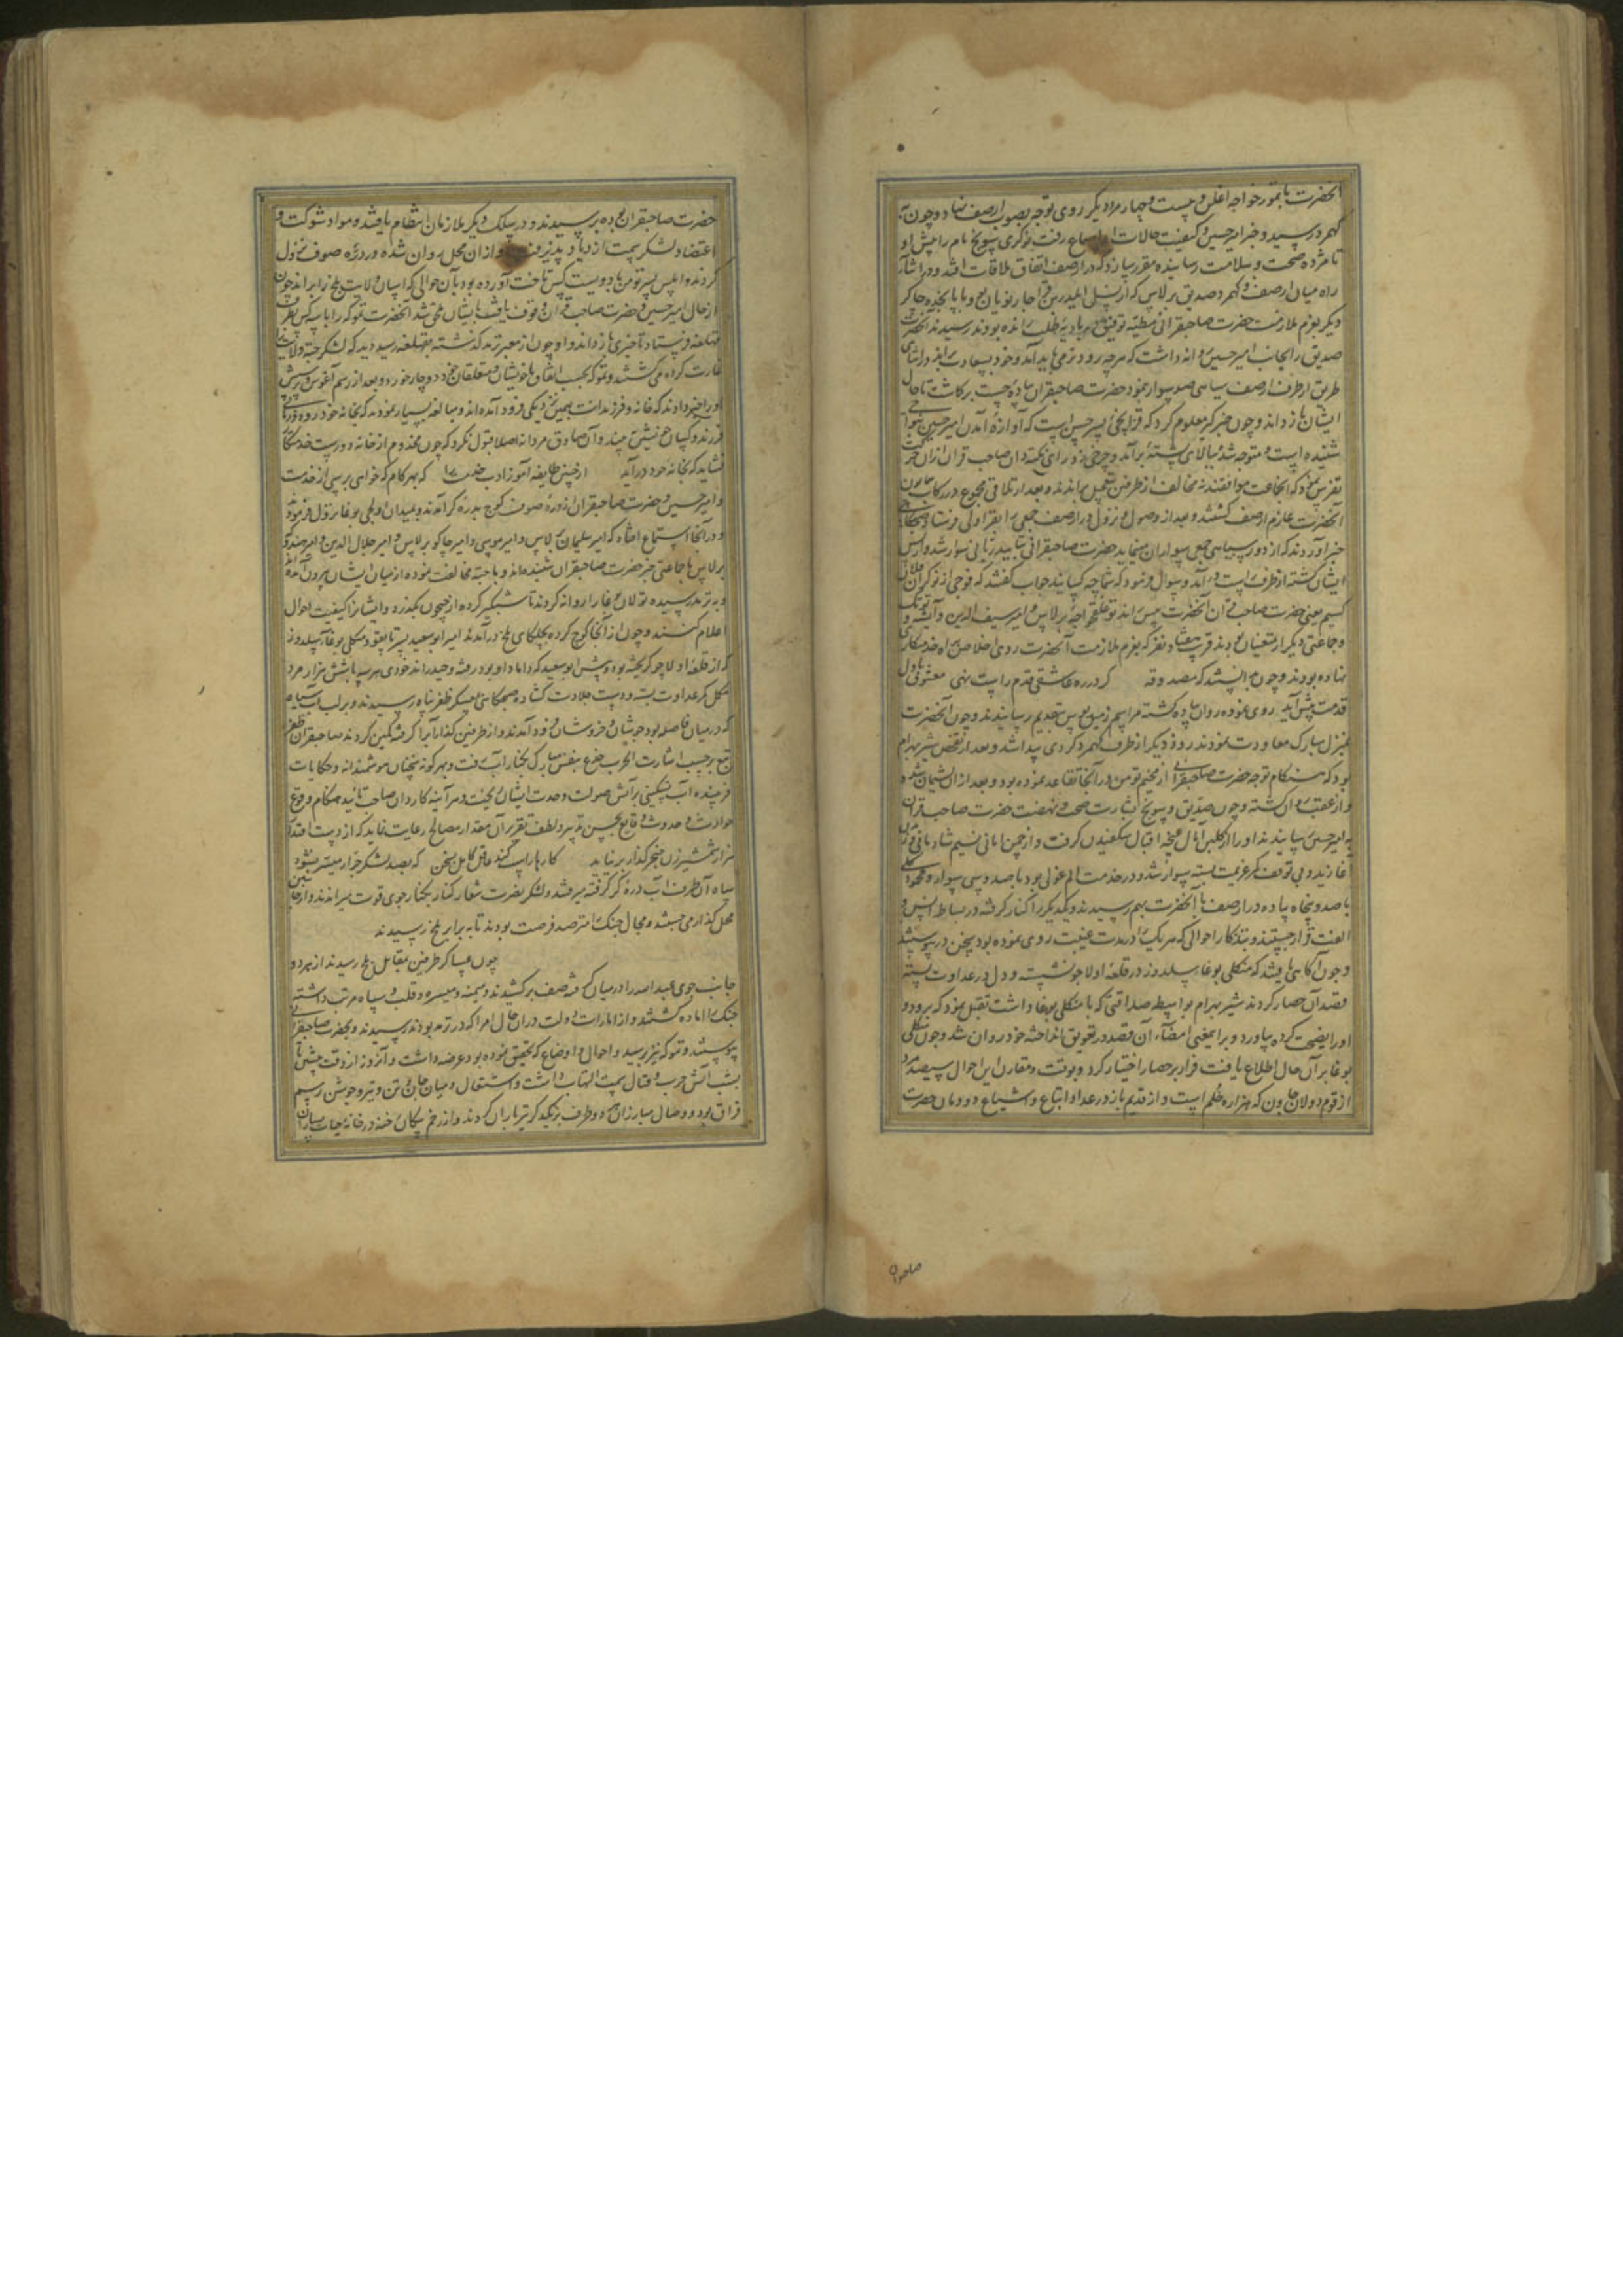 آنحضرت با تمور خواجه اغلن و بیست و چهار مرد دیگر روی توجه بصوب ارصف نهاد و چون به
کهمرد رسید و خبر امیر حسین و کیفیت حالات او رفت نوکری سونج نام را پیش او
تا مژده صحت و سلامت رسانیده مقرر سازد که در ارصف اتفاق ملاقات افتد و در اثنای
راه میان ارصف و کهمرد صدیق برلاس که از نسل ایلدرین قراجار نویان بود با پانجده چاکر
دیگر بعزم ملازمت حضرت صاحبقرانی مطیه توفیق در بادیه طلب رانده بودند رسیدند آنحضرت
صدیق را بجانب امیر حسین روانه داشت که هر چه زودتر می باید آمد و خود بسعادت براند در اثنای
طریق از طرف ارصف سیاهی صد سوار نمود حضرت صاحبقران پیاده چست برکاشت تا حال
ایشان باز داند و چون خبر گیر معلوم کرد که قزلبخی پسر حسین است که آوازه آمدن امیر حسین
شنیده است و متوجه شده ببالای پشته برآمد و چرخی زد رای نکته دان صاحب قران از آن حرکت
تفرس نمود که آنجماعت موافقند نه مخالف از طرفین بتعجیل براندند و بعد از تلاقی مجموع در رکاب همایون
آنحضرت عازم ارصف گشتند و بعد از وصول و نزول در ارصف جمعی را بقراولی فرستاد صبحگاهی
خبر آوردند که از دور سیاهی جمعی سواران مینماید حضرت صاحبقرانی بتایید ربانی سوار شد و از پس
ایشان گشته از طرف راست درآمد و سوال فرمود که شما چه کسانید جواب گفتند که فوجی از نوکران فلان
کسیم یعنی حضرت صاحب قران آنحضرت پیش راند توغلقخواجه برلاس و امیر سیف الدین و توبک
و جماعتی دیگر از متعینان بودند قریب هفتاد نفر که بعزم ملازمت آنحضرت روی اخلاص براه خدمتکاری
نهاده بودند و چون بدانستند که مصدوقه گر در ره عاشقی قدم راست نهی معشوق باول
قدمت پیش آید روی نموده روان پیاده گشته مراسم زمین بوس بتقدیم رسانیدند و چون آنحضرت
بمنزل مبارک معاودت نمودند روز دیگر از طرف کهمرد گردی پیدا شد و بعد از تفحص شیر بهرام
بود که هنگام توجه حضرت صاحبقرانی از مخیم تومن در آنجا تقاعد نموده بود و بعد از آن پشیمان شده
و از عقب روان گشته و چون صدیق و سونج بشارت صحت و نهضت حضرت صاحب قران
به امیر حسین رسانیدند او را از گلبن آمال غنچه اقبال شکفیدن گرفت و از چمن امانی نسیم شادمانی وزیدن
آغازید و بی توقف کمر عزیمت بسته سوار شد و در خدمت ایلم غول بود با صد و سی سوار و
با صد و پنجاه پیاده در ارصف با آنحضرت بهم رسیدند و یکدیگر را کنار گرفته در بساط انس و
الفت قرار جستند و بتذکار احوالی که هر یک را در مدت غیبت روی نموده بود سخن در پیوستند
و چون آگاهی یافتند که منکلی بوغا سلدوز در قلعه اولاجو نشسته و دل در عداوت بسته
قصد آن حصار کردند شیر بهرام بواسطه صداقتی که با منکلی بوغا داشت تقبل نمود که برود و
او را نصیحت کرده بیاورد و برای معنی امضاء آن قصد در تعویق انداخته خود روان شد و چون منکلی
بوغا بر آن حال اطلاع یافت فرار بر حصار اختیار کرد و بوقت و مقارن این احوال سیصد مرد
از قوم دولان جاون که هزاره خلم است و از قدیم باز در عداد اتباع و اشیاع دودمان حضرت
صاحبقران
حضرت صاحبقران بوده برسیدند و در سلک دیگر ملازمان انتظام یافتند و مواد شوکت و
اعتضاد لشکر سمت ازدیاد پذیرفت و از آن محل روان شده در دره صوف نزول
کردند و ایلس پسر تومن با دویست کس تاخت آورده بود بآن حوالی که اسپان ولایت بلخ را براند چون
از حال امیر حسین و حضرت صاحب قران وقوف یافت بایشان ملحق شد آنحضرت تموکه را با سه کس بطرف
قهلغه فرستاد تا خبری باز داند و او چون از معبر ترمد گذشته بقهلغه رسید دید که لشکر جته ولایت را
غارت کرده می گشتند و تموکه بحسب اتفاق با خویشان و متعلقان خود دوچار خورد و بعد از رسم آغوش و پرسش
او را خبر دادند که خانه و فرزندانت بهمین نزدیکی فرود آمده اند و مبالغه بسیار نمودند که بخانه خود رود و روی
فرزند و کسان خویش ببیند و آن صادق مردانه اصلا قبول نکرد که چون مخدوم از خانه دورست خدمتکار را
نشاید که بخانه خود درآید از چنین طایفه آموز ادب خدمت را که بهر کام که خواهی برسی از خدمت
و امیر حسین و حضرت صاحبقران از دره صوف کوچ بدره گز آمدند و بمیدان اولجی بوغا نزول فرمود
و در آنجا استماع افتاد که امیر سلیمان برلاس و امیر موسی و امیر جاکو برلاس و امیر جلال الدین و امیر هندوکه
برلاس با جماعتی خبر حضرت صاحبقران شنیده اند و با جته مخالفت نموده از میان ایشان بیرون آمده اند
و به ترمد رسیده تولان بوغا را روانه کردند تا شبگیر کرده از جیحون بگذرد و ایشان را کیفیت احوال
اعلام کند و چون از آنجا کوچ کرده بچلکای بلخ درآمدند امیر ابو سعید پسر تایغو و منکلی بوغا سلدوز
که از قلعه اولاجو گریخته بود و پیش ابو سعید که داماد او بود رفته و حیدر اندخودی هر سه با شش هزار مرد
مکمل کمر عداوت بسته و دست جلادت گشاده صبحگاهی بعسکر ظفر پناه رسیدند و بر لب آب سیاه
که در میان فاصله بود جوشان و خروشان فرود آمدند و از طرفین گذارها را گرفته کمین کردند صاحبقران ظفر
قرین بر حسب اشارت الحرب خدعة بنفس مبارک بکنار آب رفت و بهر گونه سخنان هوشمندانه و حکایات
فریبنده آب تسکینی بر آتش صولت و حدت ایشان ریخت و هر آینه کاردان صاحب تایید هنگام وقوع
حوادث و حدوث وقایع بحسن تدبیر و لطف تقریر آن مقدار مصالح رعایت نماید که از دست اقتدار
هزار شمشیرزن خنجر گذار برنیاید کارها راست کند عاقل کامل بسخن که بصد لشکر جرار میسر نشود
سپاه آن طرف آب دره گز گرفته میرفتند و لشکر نصرت شعار کنار بکنار جوی قوت میراندند و از جانبین
محل گذار می جستند و مجال جنگ را مترصد فرصت بودند تا به برابر بلخ رسیدند
چون عساکر طرفین مقابل بلخ رسیدند از هر دو
جانب جوی عبدالله را در میان گرفته صف برکشیدند و میمنه و میسره و قلب و سپاه مرتب داشته
جنگ را آماده گشتند و از امارات دولت در آن حال امرا که در ترمد بودند رسیدند و بحضرت صاحبقرانی
پیوستند و تموکه نیز رسید و احوال و اوضاع که تحقیق نموده بود عرضه داشت و آن روز از وقت پیشین تا
بشب آتش حرب و قتال سمت التهاب داشت و اشتعال و میان جان و تن و تیر و جوشن رسم
فراق بود و وصال مبارزان هر دو طرف بر یکدیگر تیر باران کردند و از زخم پیکان رخنه در خانه حیات مبارزان